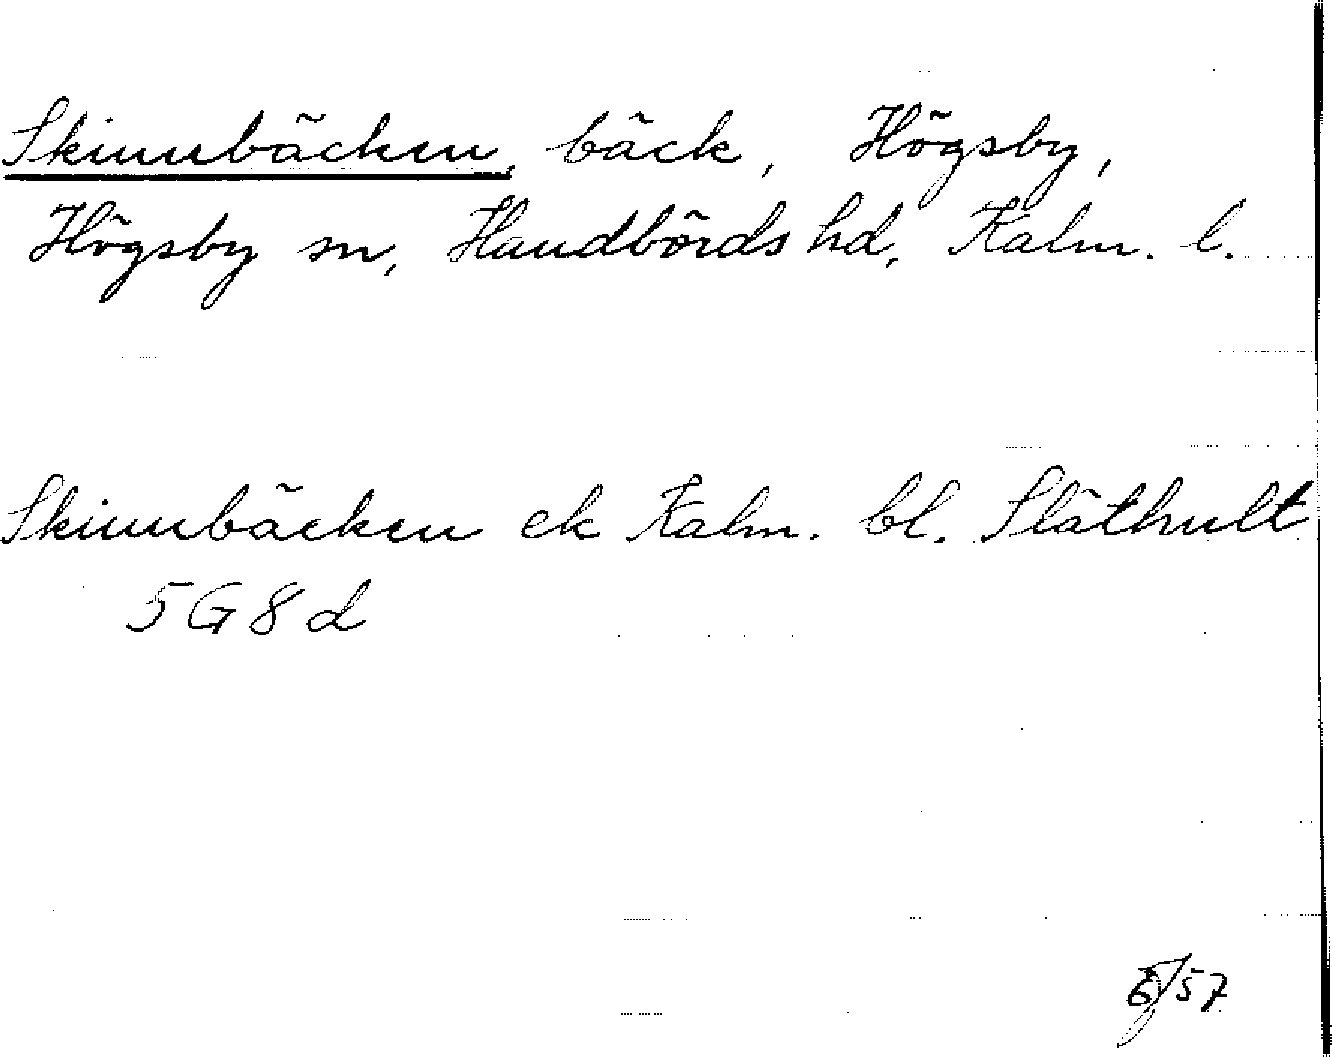 Skinnbäcken, bäck, Högsby,
Högsby sn, Handbörds hd, Kalm. l.
Skinnbäcken ek Kalm. bl. Släthult
5G8d
57